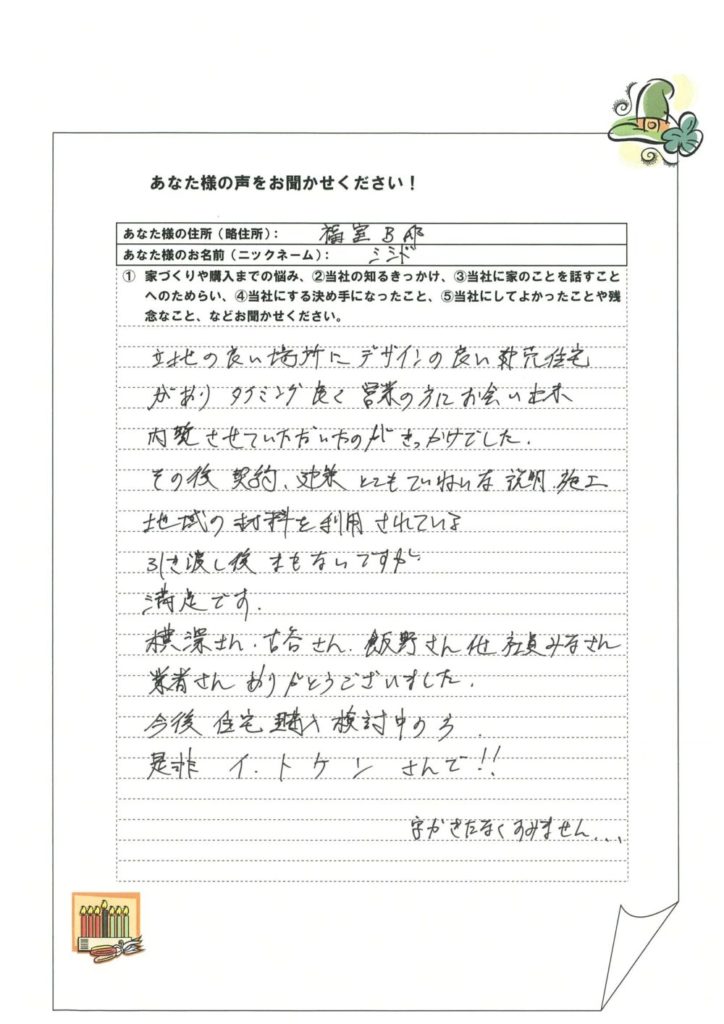 あなた様の声をお聞かせください！
あなた様の住所（略住所）： 福室B邸
あなた様のお名前（ニックネーム）： シシド
① 家づくりや購入までの悩み、②当社の知るきっかけ、③当社に家のことを話すこと
へのためらい、④当社にする決め手になったこと、⑤当社にしてよかったことや残
念なこと、などお聞かせください。
立地の良い場所にデザインの良い建売住宅
があり タイミング良く 営業の方にお会い出来
内覧させていただいたのがきっかけでした.
その後 契約、とてもていねいな 説明.施工
地域の材料を利用されている
引き渡し後 まもないですが
満足です.
横深さん.古谷さん.飯野さん他 社員みなさん
業者さん ありがとうございました.
今後 住宅購入検討中の方.
是非 イ.トケン さんで!!
字がきたなくすみません...